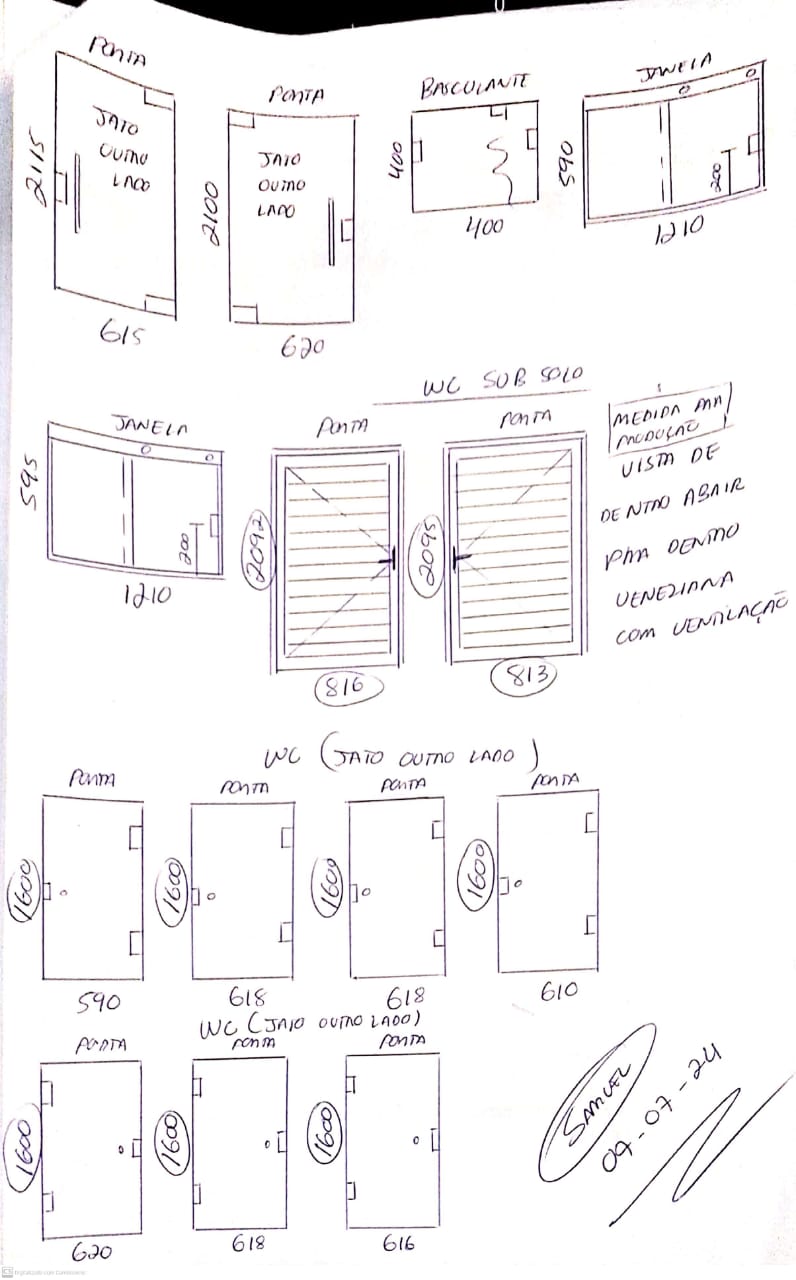 PORTA
JATO
OUTRO
LADO
2115
615
PORTA
JATO
OUTRO
LADO
2100
620
BASCULANTE
400
400
JANELA
590
200
1210
JANELA
595
200
1210
WC SUB SOLO
PORTA
2092
816
PORTA
2095
813
MEDIDA PRA
PRODUÇÃO
VISTA DE
DENTRO ABRIR
PRA DENTRO
VENEZIANA
COM VENTILAÇÃO
WC (JATO OUTRO LADO)
PORTA
1600
590
PORTA
1600
618
PORTA
1600
618
PORTA
1600
610
WC (JATO OUTRO LADO)
PORTA
1600
620
PORTA
1600
618
PORTA
1600
616
SAMUEL
09-07-24
CS Digitalizado com CamScanner